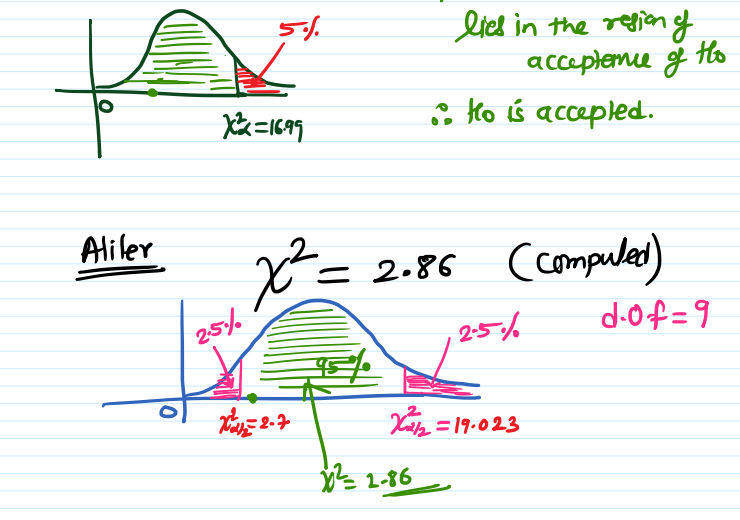 5%
lies in the region of
acceptence of Ho
0
χ²α = 16.99
∴ Ho is accepted.
Aliter
χ² = 2.86 (computed)
d.o.f = 9
2.5%
95%
2.5%
0
χ²α/2 = 2.7
χ²α/2 = 19.023
χ² = 2.86